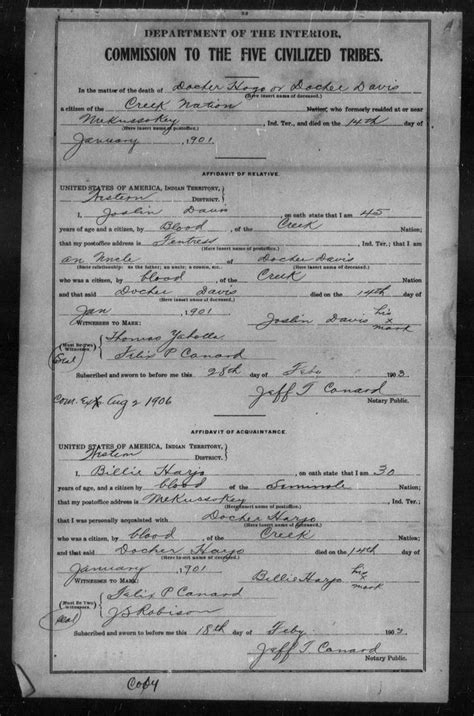 DEPARTMENT OF THE INTERIOR,
COMMISSION TO THE FIVE CIVILIZED TRIBES.
In the matter of the death of Docher Hogo or Docher Davis
(Here insert name of deceased.)
a citizen of the Creek Nation Nation, who formerly resided at or near
Mekussokey, Ind. Ter., and died on the 14th day of
(Here insert name of postoffice.)
January, 1901.
AFFIDAVIT OF RELATIVE.
UNITED STATES OF AMERICA, INDIAN TERRITORY,
Western DISTRICT.
I, Joslin Davis, on oath state that I am 45
years of age and a citizen, by Blood, of the Creek Nation;
that my postoffice address is Fentress; that I am
(Here insert name of postoffice.)
an Uncle of Docher Davis
(State relationship: as the father, an uncle, a cousin, etc.) (Here insert name of deceased.)
who was a citizen, by blood, of the Creek Nation
and that said Docher Davis died on the 14th day of
(Here insert name of deceased.)
Jan, 1901
WITNESSES TO MARK: Joslin Davis his x mark
Thomas Yahola
(Must Be Two Witnesses.)
(Seal) Felix P Canard
Subscribed and sworn to before me this 28th day of Feby 1903
Jeff T. Canard
Notary Public.
Com. Ex. Aug 2 1906
AFFIDAVIT OF ACQUAINTANCE.
UNITED STATES OF AMERICA, INDIAN TERRITORY,
Western DISTRICT.
I, Billie Harjo, on oath state that I am 30
years of age, and a citizen by blood of the Seminole Nation;
that my postoffice address is Mekussokey
(Here insert name of postoffice.)
that I was personally acquainted with Docher Harjo
(Here insert name of deceased.)
who was a citizen, by blood, of the Creek Nation;
and that said Docher Harjo died on the 14th day of
(Here insert name of deceased.)
January, 1901
WITNESSES TO MARK: Billie Harjo his x mark
Felix P Canard
(Must Be Two Witnesses.)
(Seal) J S Robison
Subscribed and sworn to before me this 18th day of Feby 190
Jeff T. Canard
Notary Public.
Copy